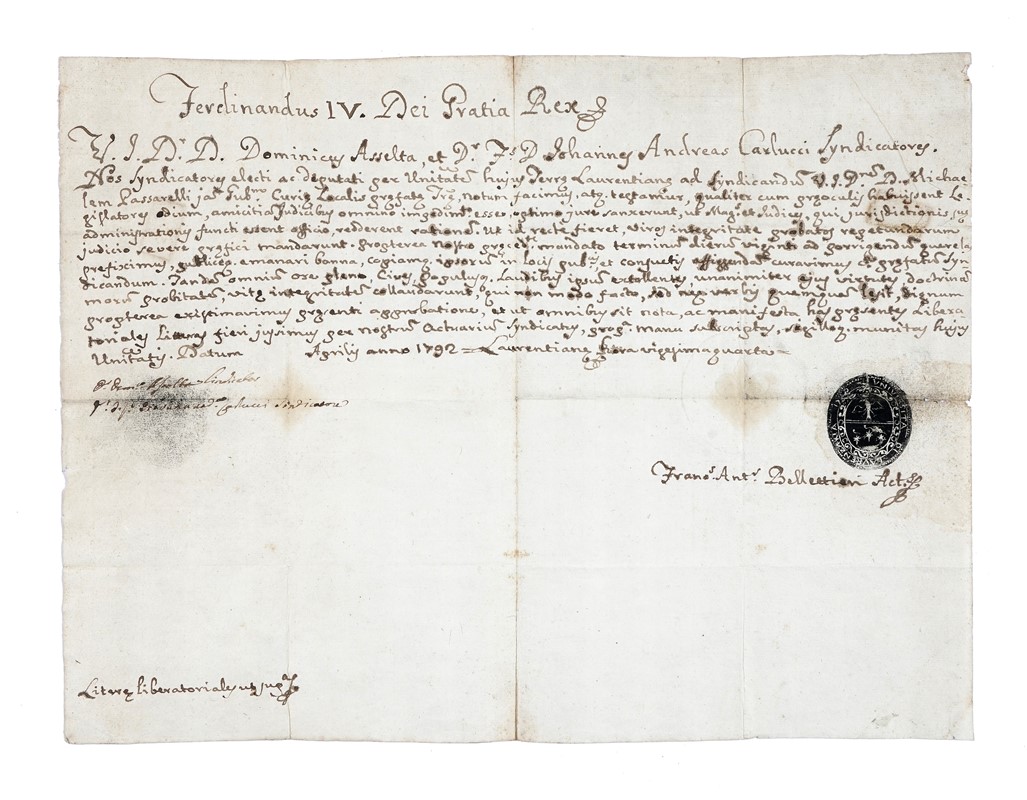 Ferdinandus IV. Dei Gratia Rex
V. J. Dr. D. Dominicus Asselta, et Dr. Fs. D Johannes Andreas Carlucci Syndicatores.
Nos Syndicatores electi ac deputati per Unitatē hujus Terrę Laurentianę ad Syndicandū U. J. Dnm D. Michae
lem Passarelli jā Gubrm Curię Localis pręfatę Trę, notum facimus, atq testamur, qualiter cum pręoculis habuissent Le
gislatores odium, amicitiā Judicibus omnino impedimto esse, optimo jure sanxerunt, ut Magros et Judices, qui jurisdictionis, jus
administrationis functi essent officio, redderent rationē. Ut id recte fieret, viros integritate probatos repetundarum
judicio severe pręfici mandarunt. Propterea nostro pręced mandato terminū dierum viginti ad porrigendum querelą
prefiximus, publiceq. emanari banna, copiamq. ipsorum in locis pubcis, et consuetis affiggendā curavimus pręfatum Syn
dicandum. Tandē omnium ore pleno, Cives, Populusq. Laudibus ipsum extollentes unanimiter ejus virtutes doctrinā
morū probitatē, vitę integritatē collaudarunt, qui non modo facto, sed neq verbis quemquem lęsit, dignum
propterea existimavimus pręsenti approbatione, et ut omnibus sit nota, ac manifesta has pręsentes Libera
toriales Literas fieri jussimus per nostrū Actuariū Syndicatus, propr. manu subscriptas, sigilloq. munitas hujus
Unitatis. Datum Aprilis anno 1792 = Laurentianę hora vigesimaquarta =
Asselta Sindicatore
Carlucci Sindicatore
Franc. Ant. Bellettieri Act.
Literę liberatoriales ut supa